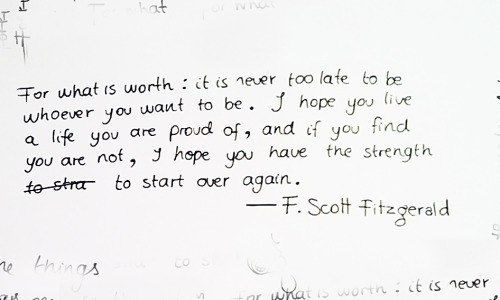 what for what
I
I
H
For what is worth : it is never too late to be
whoever you want to be. I hope you live
a life you are proud of, and if you find
you are not, I hope you have the strength
to stra to start over again.
— F. Scott Fitzgerald
things to
for what is worth : it is never